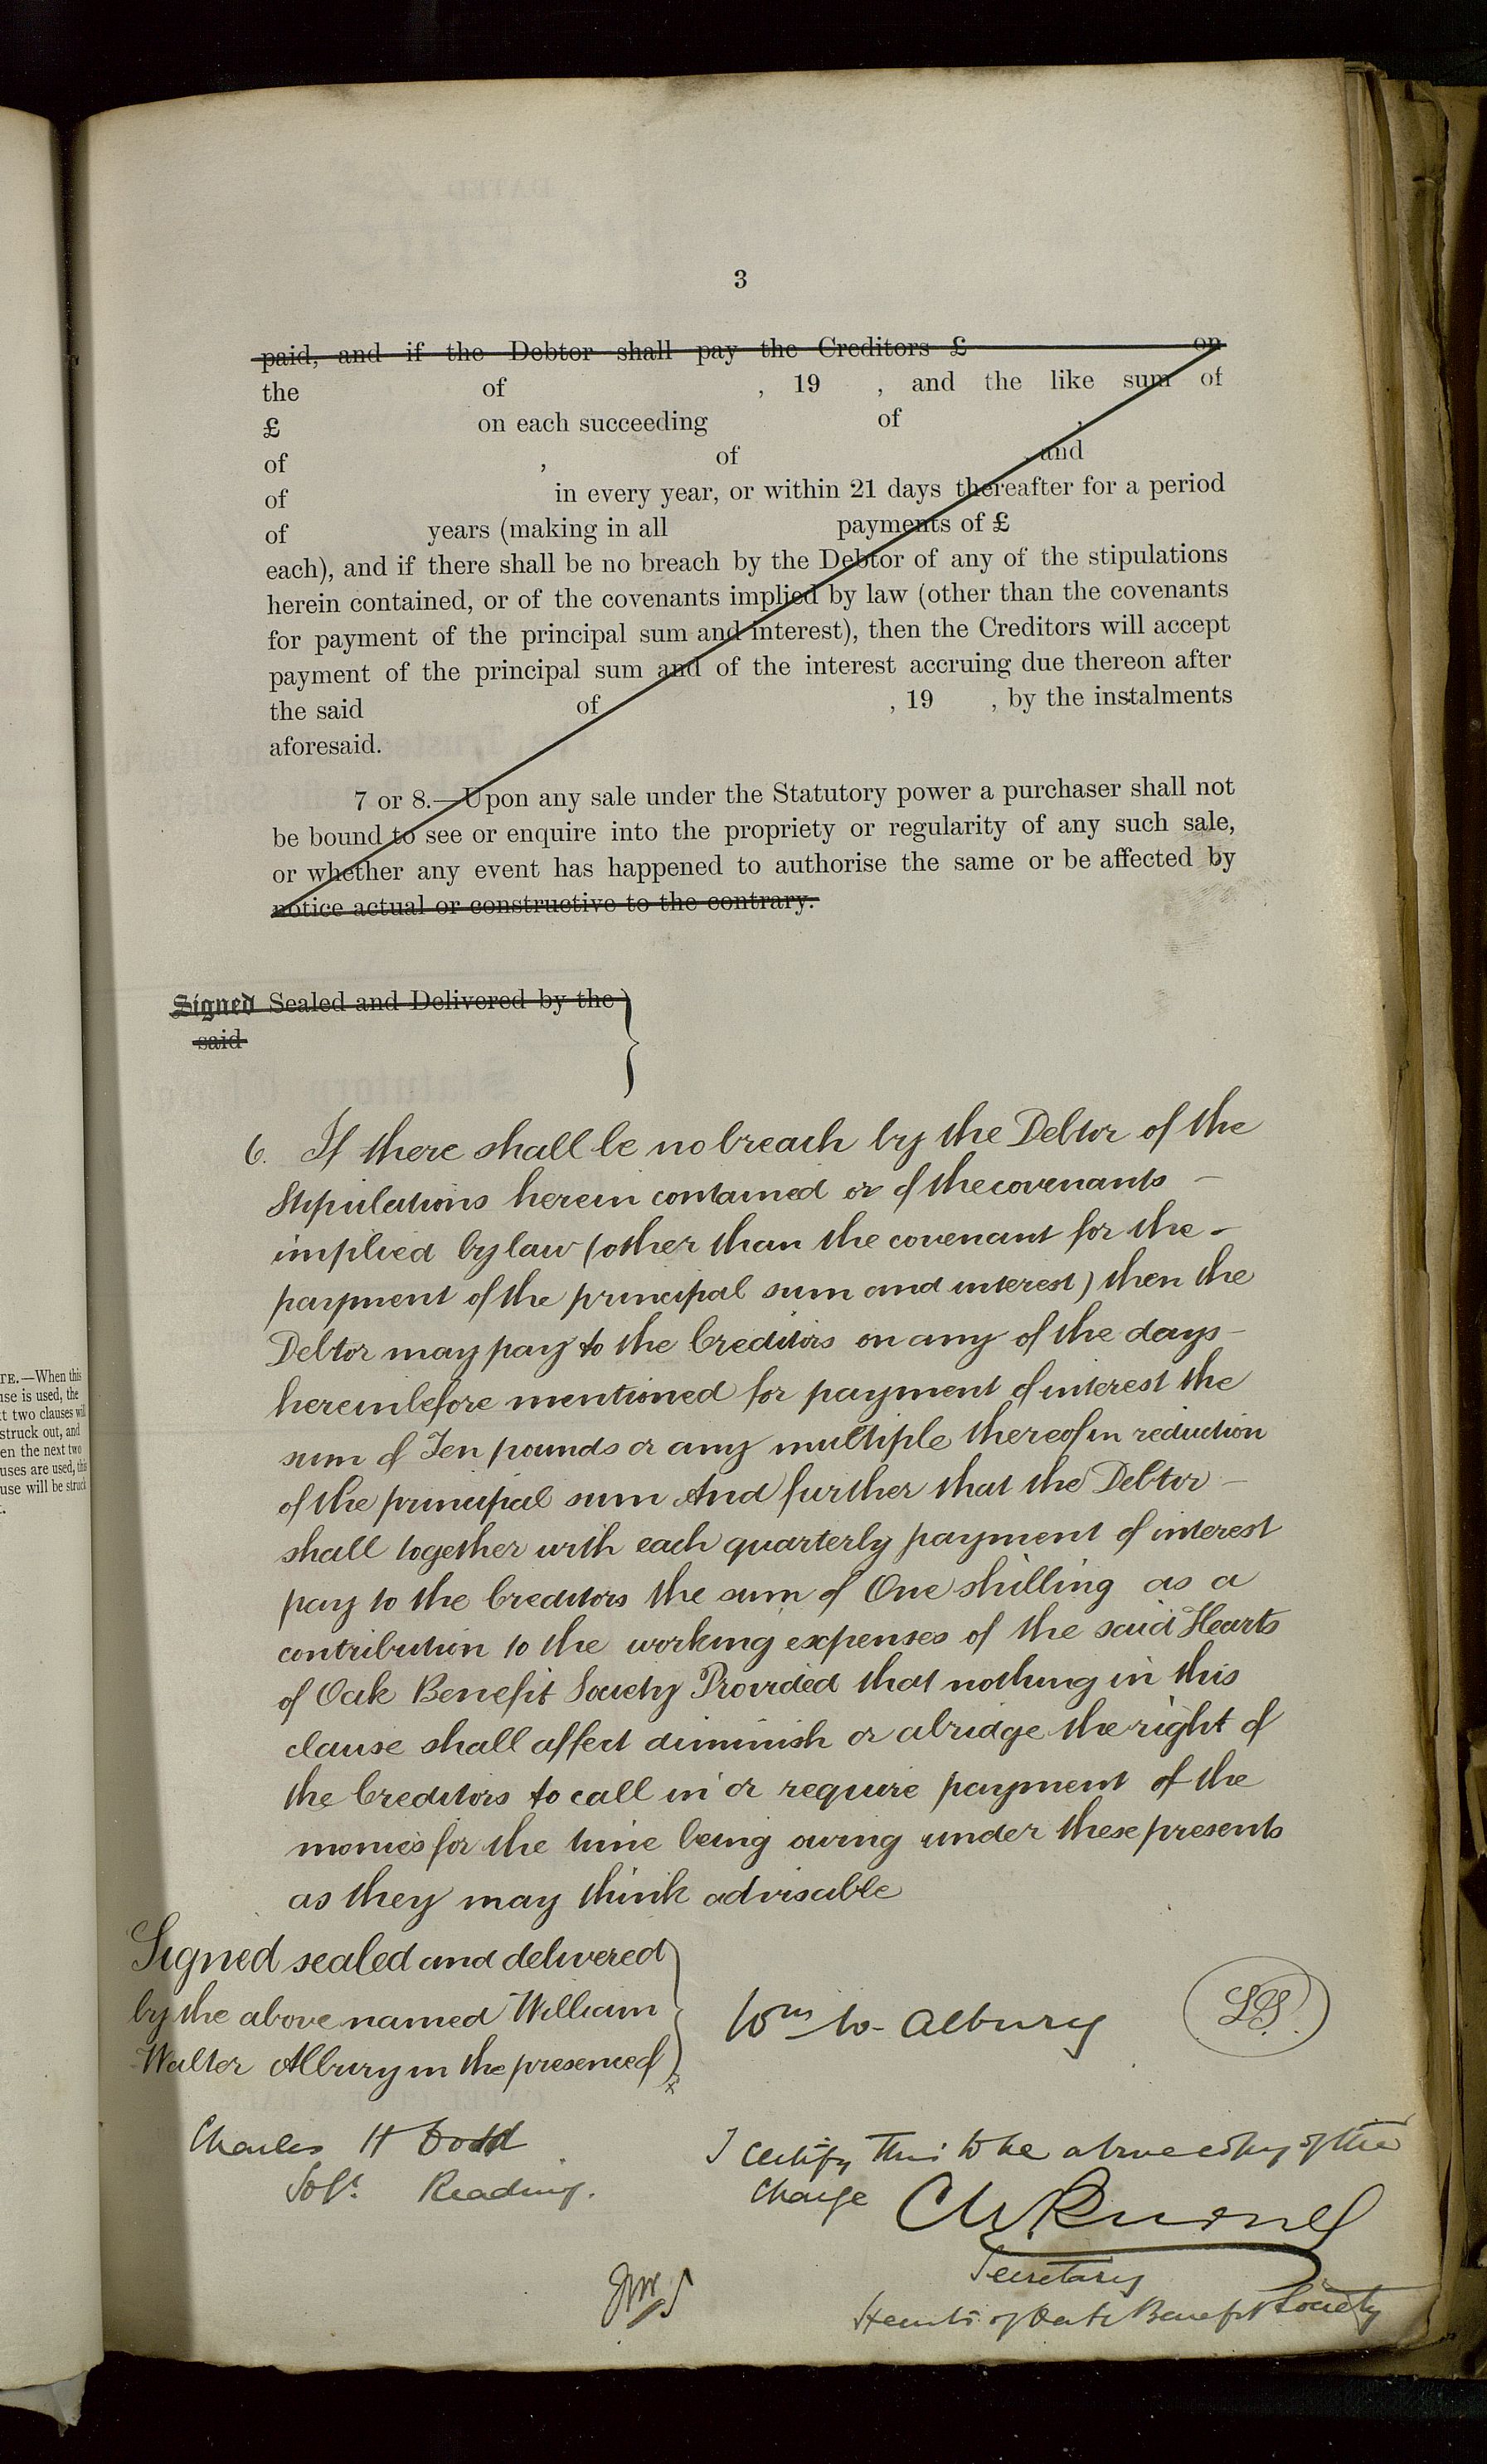 3
paid, and if the Debtor shall pay the Creditors £ on
the of , 19 , and the like sum of
£ on each succeeding of ,
of , of , and
of in every year, or within 21 days thereafter for a period
of years (making in all payments of £
each), and if there shall be no breach by the Debtor of any of the stipulations
herein contained, or of the covenants implied by law (other than the covenants
for payment of the principal sum and interest), then the Creditors will accept
payment of the principal sum and of the interest accruing due thereon after
the said of , 19 , by the instalments
aforesaid.
7 or 8.—Upon any sale under the Statutory power a purchaser shall not
be bound to see or enquire into the propriety or regularity of any such sale,
or whether any event has happened to authorise the same or be affected by
notice actual or constructive to the contrary.
Signed Sealed and Delivered by the
said
6. If there shall be no breach by the Debtor of the
Stipulations herein contained or of the covenants —
implied by law (other than the covenant for the —
payment of the principal sum and interest) then the
Debtor may pay to the Creditors on any of the days —
hereinbefore mentioned for payment of interest the
sum of Ten pounds or any multiple thereof in reduction
of the principal sum And further that the Debtor —
shall together with each quarterly payment of interest
pay to the Creditors the sum of One shilling as a
contribution to the working expenses of the said Hearts
of Oak Benefit Society Provided that nothing in this
clause shall affect diminish or abridge the right of
the Creditors to call in or require payment of the
monies for the time being owing under these presents
as they may think advisable
Signed sealed and delivered
by the above named William
Walter Albury in the presence of
Wm W. Albury
LS.
Charles H Dodd
Solr. Reading.
I certify this to be a true copy of the
Charge
Secretary
Hearts of Oak Benefit Society
TE.—When this
use is used, the
t two clauses will
struck out, and
en the next two
uses are used, this
use will be struck